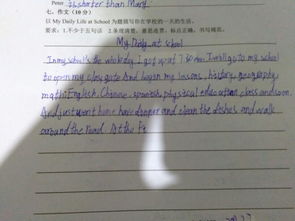 Peter is shorter than Mary.
七、作文（10分）
以 My Daily Life at School 为题描写你在学校的一天的生活。
要求：1.不少于五句话 2.条理清楚，意思连贯，标点正确，书写规范。
My Daily at school
In my school's the whole day. I get up at I will go to my school
to open my class And began my lessons, history, geography
math, English, Chinese, spanish, physical education class and soon.
And just went home have danper and clean the dishes and walk
around the road. At the